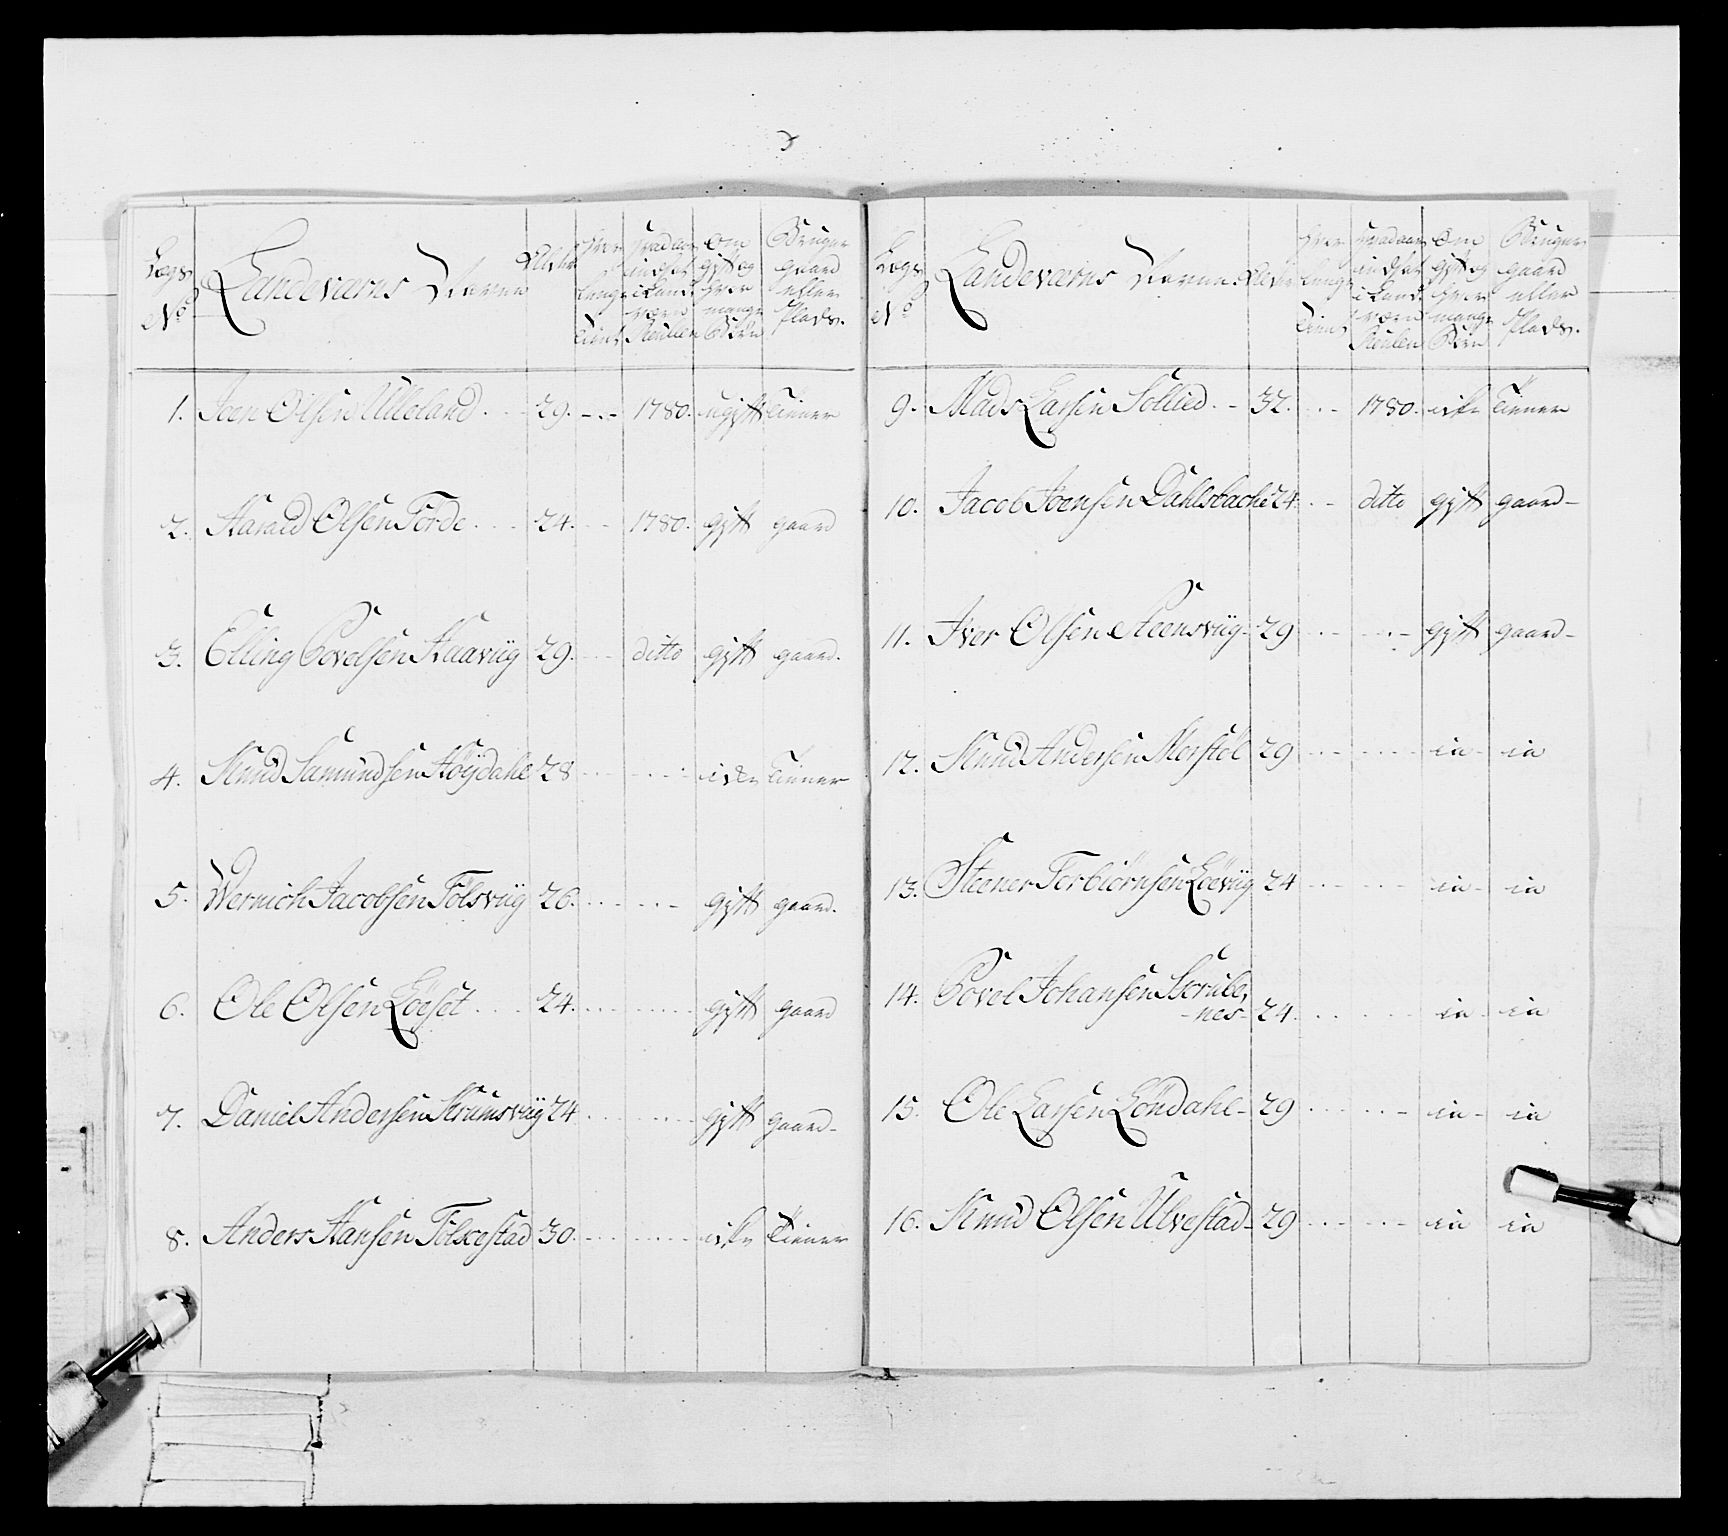 Lægs No Landeværns Navne Alder Hvor længe Tient Hvad aar indsat i Land værn Rullen Om gift og hvor mange Børn Bruger gaard eller Plads.
1. Joen Olsen Ulleland 29. 1780. ugift Tiener
2. Harald Olsen Förde 24. 1780. gift gaard
3. Elling Povelsen Haaviig 29. ditto gift gaard.
4. Knud Samundsen Höÿdahl 28 icke Tiener
5. Wernich Jacobsen Tölsviig 26. gift gaard.
6. Ole Olsen Löeset 24. gift gaard
7. Daniel Andersen Krumsviig 24 gift gaard-
8. Anders Hansen Folkestad 30. icke Tiener
Lægs No Landeværns Navne Alder Hvor længe Tient Hvad aar indsat i Land værn Rullen Om gift og hvor mange Börn Bruger gaard eller Plads.
9. Mads Larsen Sollied 32. 1780. icke Tiener
10. Jacob Joensen Dahlsbache 24. ditto gift gaard-
11. Iver Olsen Steensviig 29 gift gaard-
12. Knud Andersen Merstöl 29 ia ia
13. Steener Torbiörnsen Löeviig 24 ia ia
14. Povel Johansen Skrube,
-nes- 24. ia ia
15. Ole Larsen Löndahl- 29 ia ia
16. Knud Olsen Ulvestad- 29 ia ia